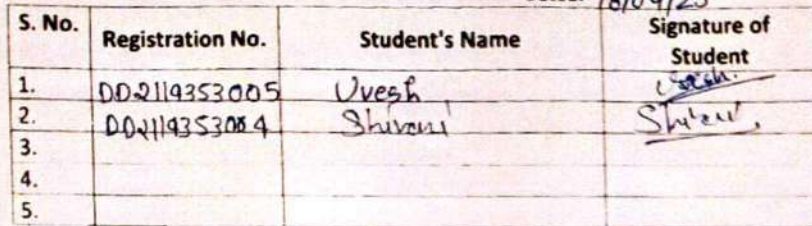 18/04/23
S. No. Registration No. Student's Name Signature of Student
1. DD2119353005 Uvesh Uvesh.
2. DD2119353004 Shivani Shivani
3.
4.
5.